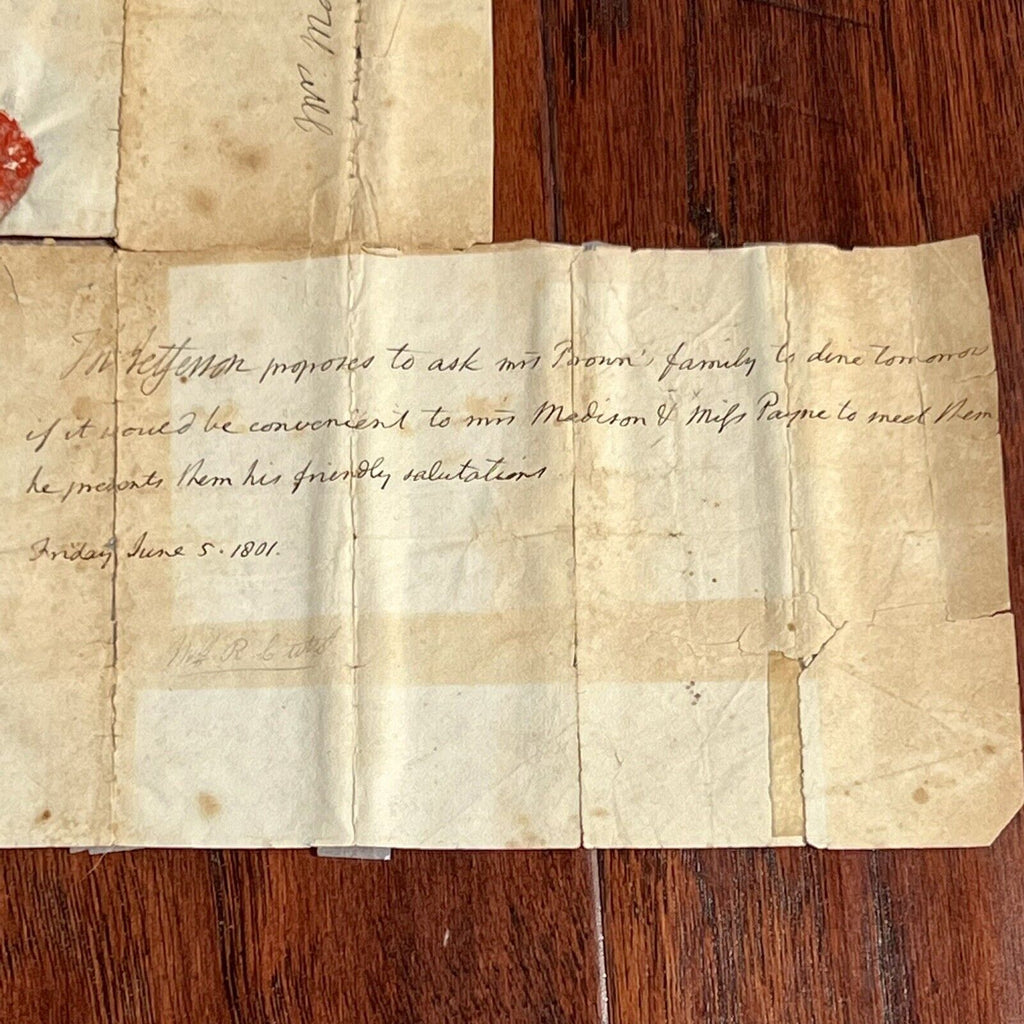 Mr
Th Jefferson proposes to ask mrs Brown's family to dine tomorrow
if it would be convenient to mrs Madison & Miss Payne to meet them
he presents them his friendly salutations
Friday June 5. 1801.